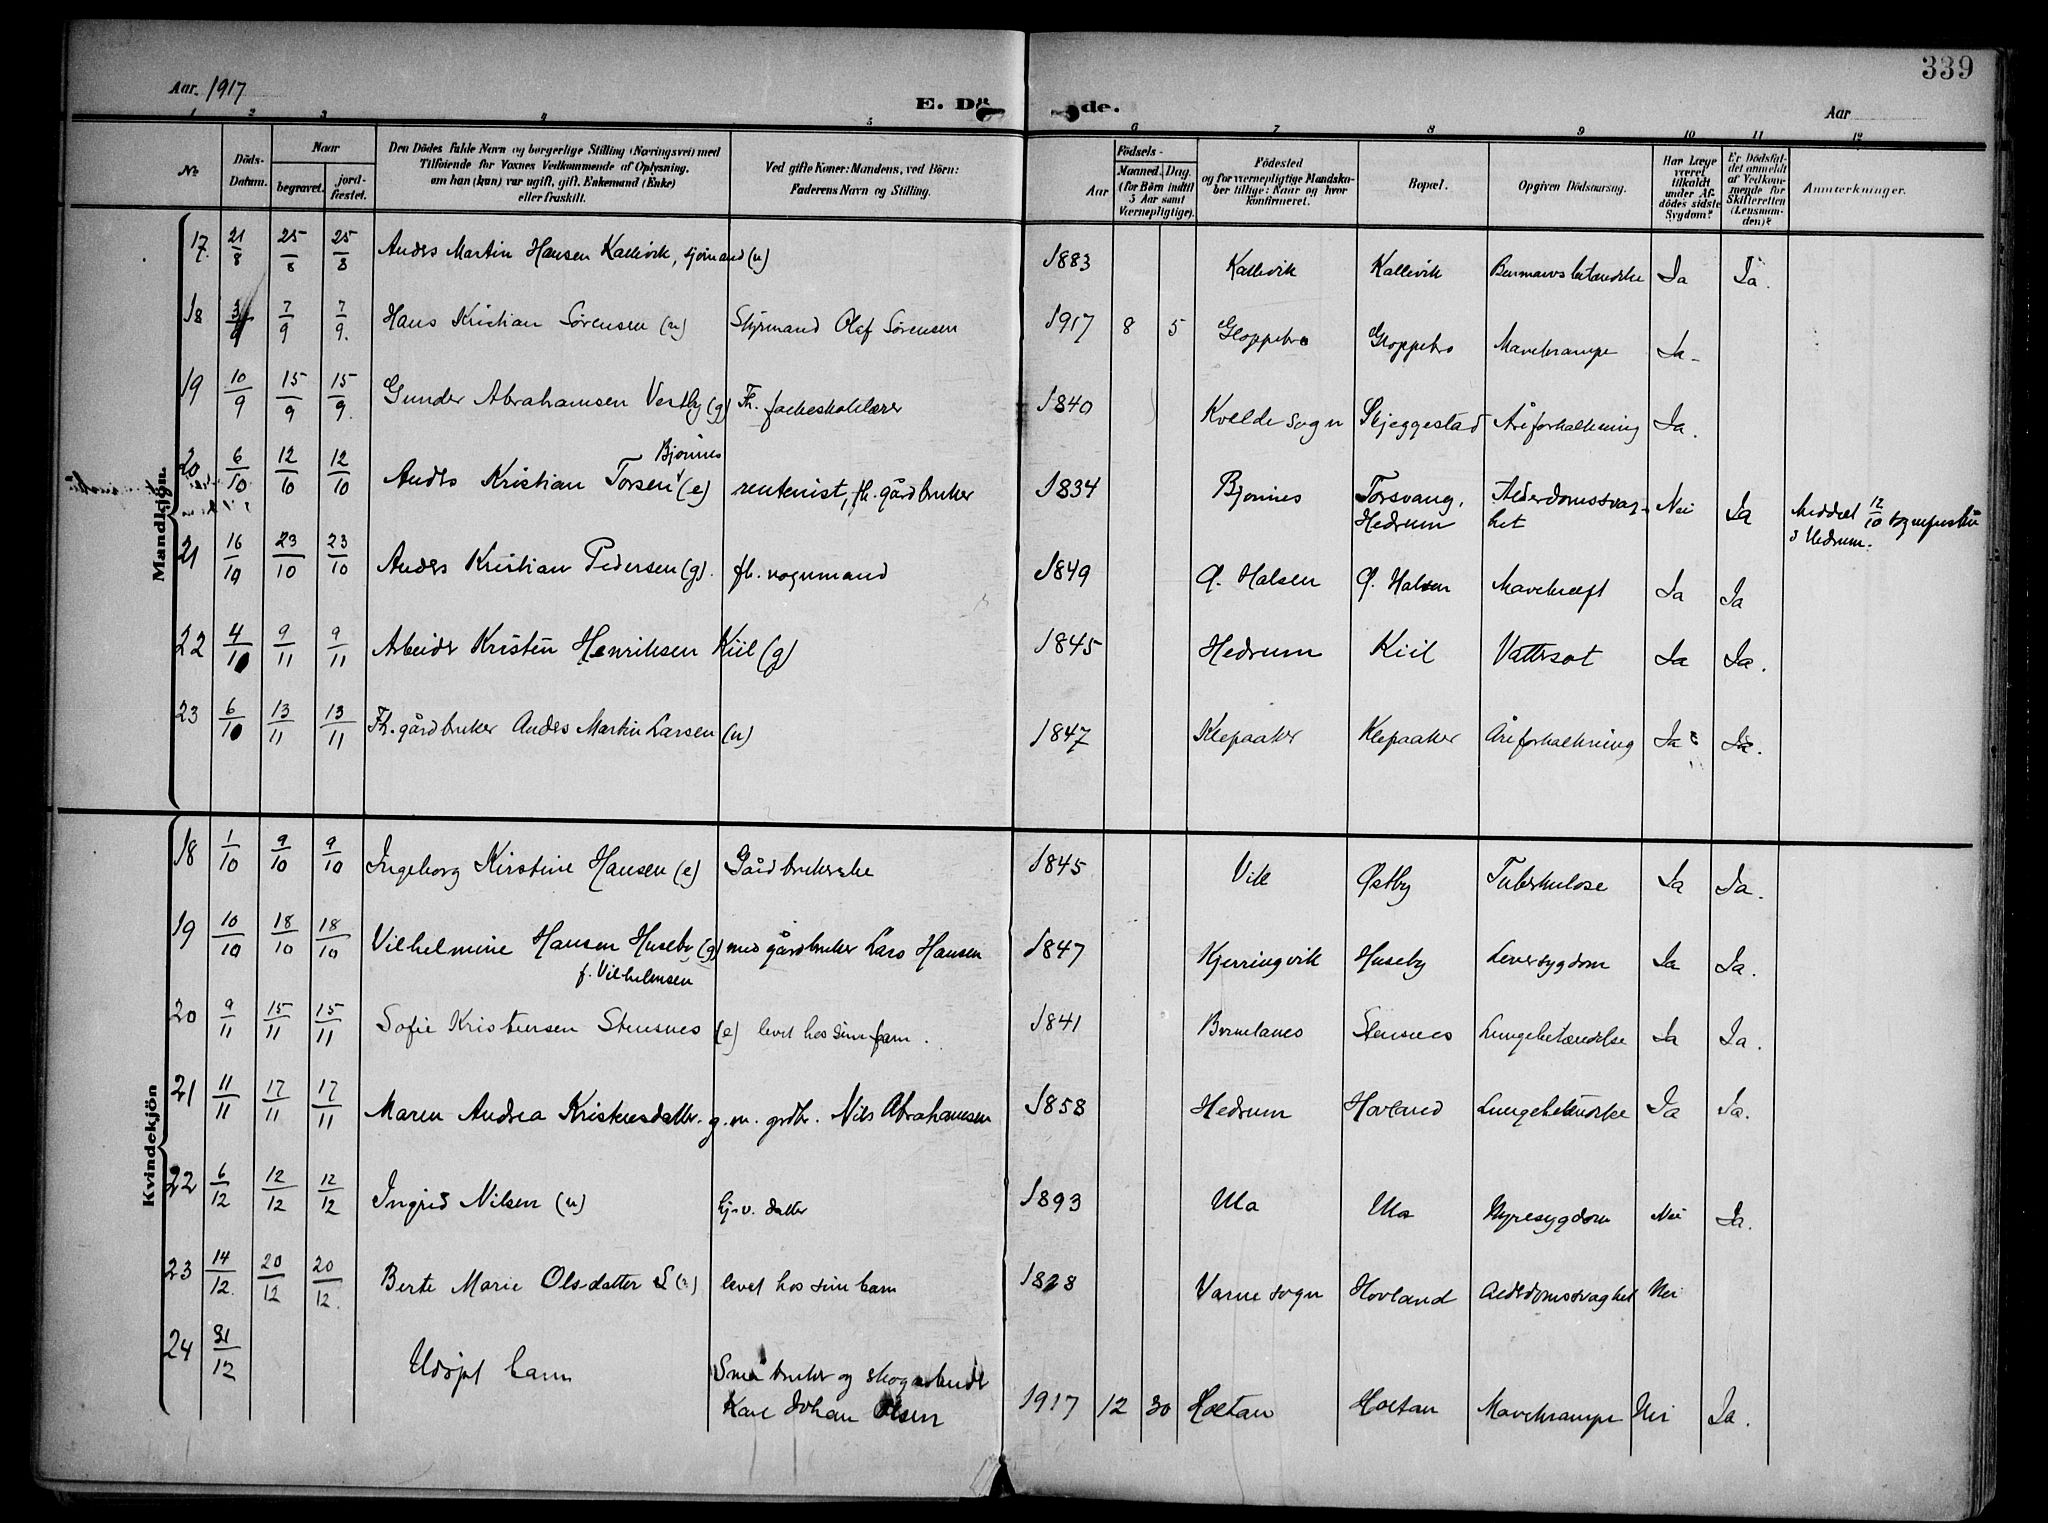 339
Aar 1917
E. Dö de.
Aar
1 2 3 4 5 6 7 8 9 10 11 12
No
Döds-Datum.
Naar
begravet.
jord-fæstet.
Den Dödes fulde Navn og borgerlige Stilling (Næringsvei) med
Tilföiende for Voxnes Vedkommende af Oplysning,
om han (hun) var ugift, gift, Enkemand (Enke)
eller fraskilt.
Ved gifte Koner: Mandens, ved Börn:
Faderens Navn og Stilling.
Födsels-
Aar
Maaned. Dag.
(for Börn indtil
3 Aar samt
Værnepligtige).
Födested
og for værnepligtige Mandska-
ber tillige: Naar og hvor
konfirmeret.
Bopæl.
Opgiven Dödsaarsag.
Har Læge
været
tilkaldt
under Af-
dödes sidste
Sygdom?
Er Dödsfal-
det anmeldt
af Vedkom-
mende for
Skifteretten
(Lensman-
den)?
Anmærkninger.
Mandkjön
17. 21/8 25/8 25/8 Anders Martin Hansen Kallevik, sjømand (u) 1883 Kallevik Kallevik betændelse Ja Ja.
18 3/9 7/9 7/9. Hans Kristian Sørensen (u) Styrmand Olaf Sørensen 1917 8 5 Gloppebo Gloppebo Mavekrampe Ja
19 10/9 15/9 15/9. Gunder Abrahamsen Vestby (g) Fh. folkeskolelærer 1840 Kvelde sogn Skjeggestad Åreforkalkning Ja.
20 6/10 12/10 12/10 Anders Kristian Torsen Bjønnes (e) rentenist, fh. gårdbruker 1834 Bjønnes Torsvang, Hedrum Alderdomssvaghet Nei Ja Meddelt 12/10 sognepresten i Hedrum.
21 16/10 23/10 23/10 Anders Kristian Pedersen (g). fh. vognmand 1849 Ø. Halsen Ø. Halsen Mavekræft Ja Ja
22 4/10 9/11 9/11 Arbeider Kristen Henriksen Kiil (g) 1845 Hedrum Kiil Vattersot Ja Ja.
23 6/10 13/11 13/11 Fh. gårdbruker Anders Martin Larsen (u) 1847 Klepaaker Klepaaker Åreforkalkning Ja Ja.
Kvindekjön
18 1/10 9/10 9/10 Ingeborg Kirstine Hansen (e) Gårdbrukerske 1845 Vik Østby Tuberkulose Ja Ja.
19 10/10 18/10 18/10 Vilhelmine Hansen Huseby (g) med gårdbruker Lars Hansen 1847 Kjerringvik Huseby Leversygdom Ja Ja.
f. Vilhelmsen
20 9/11 15/11 15/11 Sofie Kristensen Stensnes (e) levet hos sine barn. 1841 Stensnes Lungebetændelse Ja Ja.
21 11/11 17/11 17/11 Maren Andrea Kristensdatter. g. m. grdbr. Nils Abrahamsen 1858 Hedrum Hovland Lungebetændelse Ja Ja.
22 6/12 12/12 12/12 Ingrid Nilsen (u) hj.v. datter 1893 Ula Ula Nyresygdom Nei Ja.
23 14/12. 20/12 20/12. Berte Marie Olsdatter levet hos sine barn 1828 sogn Hovland Alderdomssvaghet Nei
24 31/12 Udøpt barn Småbruker og skogarbeider
Karl Johan Olsen 1917 12 30 Holtan Holtan Mavekrampe Nei Ja.